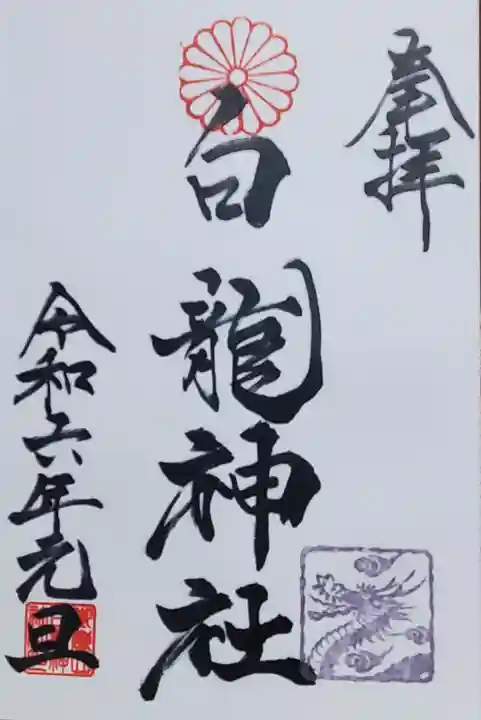 奉拝
白龍神社
令和六年元旦